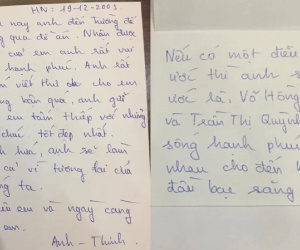 HN: 19-12-2003
nay anh đến trường để
qua đề án. Nhận được
của em anh rất vui
hạnh phúc. Anh rất
viết thư dài cho em
bận quá, anh gửi
em tấm thiếp với những
chúc tốt đẹp nhất.
hứa, anh sẽ làm
cả vì tương lai của
ta.
em và ngày càng
em.
Anh - Thịnh.
Nếu có một điều
ước thì anh sẽ
ước là, Võ Hồng
và Trần Thị Quỳnh
sống hạnh phúc
nhau cho đến
đầu bạc răng